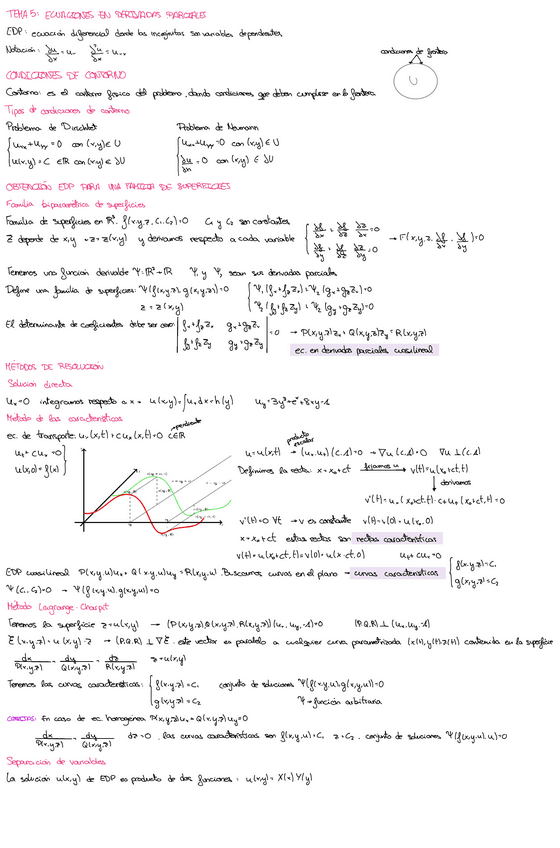 TEMA 5: ECUACIONES EN DERIVADAS PARCIALES
EDP: ecuación diferencial donde las incógnitas son variables dependientes.
Notación: ∂u/∂x = uₓ ∂²u/∂x = uₓₓ
condiciones de frontera
U
CONDICIONES DE CONTORNO
Contorno: es el contorno físico del problema, dando condiciones que deben cumplirse en la frontera.
Tipos de condiciones de contorno
Problema de Dirichlet Problema de Neumann
uₓₓ+uᵧᵧ=0 con (x,y)∈U uₓₓ+uᵧᵧ=0 con (x,y)∈U
u(x,y)=C ∈R con (x,y)∈∂U ∂u/∂n=0 con (x,y)∈∂U
OBTENCIÓN EDP PARA UNA FAMILIA DE SUPERFICIES
Familia biparamétrica de superficies
Familia de superficies en R³. f(x,y,z,C₁,C₂)=0 C₁ y C₂ son constantes
Z depende de x,y → z=z(x,y) y derivamos respecto a cada variable
Tenemos una función derivable Ψ:R²→R Ψ₁ y Ψ₂ sean sus derivadas parciales
Define una familia de superficies: Ψ(f(x,y,z),g(x,y,z))=0
z=z(x,y)
El determinante de coeficientes debe ser cero: =0 → P(x,y,z)zₓ+Q(x,y,z)zᵧ=R(x,y,z)
ec. en derivadas parciales cuasilineal
MÉTODOS DE RESOLUCIÓN
Solución directa
uₓ=0 integramos respecto a x → u(x,y)=∫uₓdx=h(y)
Método de las características
ec. de transporte: c∈R pendiente
u(x,0)=f(x)
producto escalar
Definimos la recta: x=x₀+ct fijamos u v(t)=u(x₀+ct,t)
derivamos
v'(t)=0 ∀t → v es constante v(t)=v(0)=u(x₀,0)
x=x₀+ct estas rectas son rectas características
v(t)=u(x₀+ct,t)=v(0)=u(x-ct,0)
EDP cuasilineal P(x,y,u)uₓ+Q(x,y,u)uᵧ=R(x,y,u). Buscamos curvas en el plano → curvas características f(x,y,z)=C₁
g(x,y,z)=C₂
Ψ(C₁,C₂)=0 → Ψ(f(x,y,u),g(x,y,u))=0
Método Lagrange-Charpit
Tenemos la superficie z=u(x,y) → (P(x,y,z),Q(x,y,z),R(x,y,z))(uₓ,uᵧ,-1)=0 (P,Q,R)⊥(uₓ,uᵧ,-1)
este vector es paralelo a cualquier curva parametrizada (x(t),y(t),z(t)) contenida en la superficie
dx/P(x,y,z) = dy/Q(x,y,z) = dz/R(x,y,z) z=u(x,y)
Tenemos las curvas características: f(x,y,z)=C₁ conjunto de soluciones Ψ(f(x,y,u),g(x,y,u))=0
g(x,y,z)=C₂ Ψ→función arbitraria
En caso de ec. homogénea P(x,y,z)uₓ+Q(x,y,z)uᵧ=0
dx/P(x,y,z) = dy/Q(x,y,z) dz=0. las curvas características son f(x,y,u)=C₁ z=C₂. conjunto de soluciones Ψ(f(x,y,u),u)=0
Separación de variables
La solución u(x,y) de EDP es producto de dos funciones: u(x,y)=X(x)Y(y)